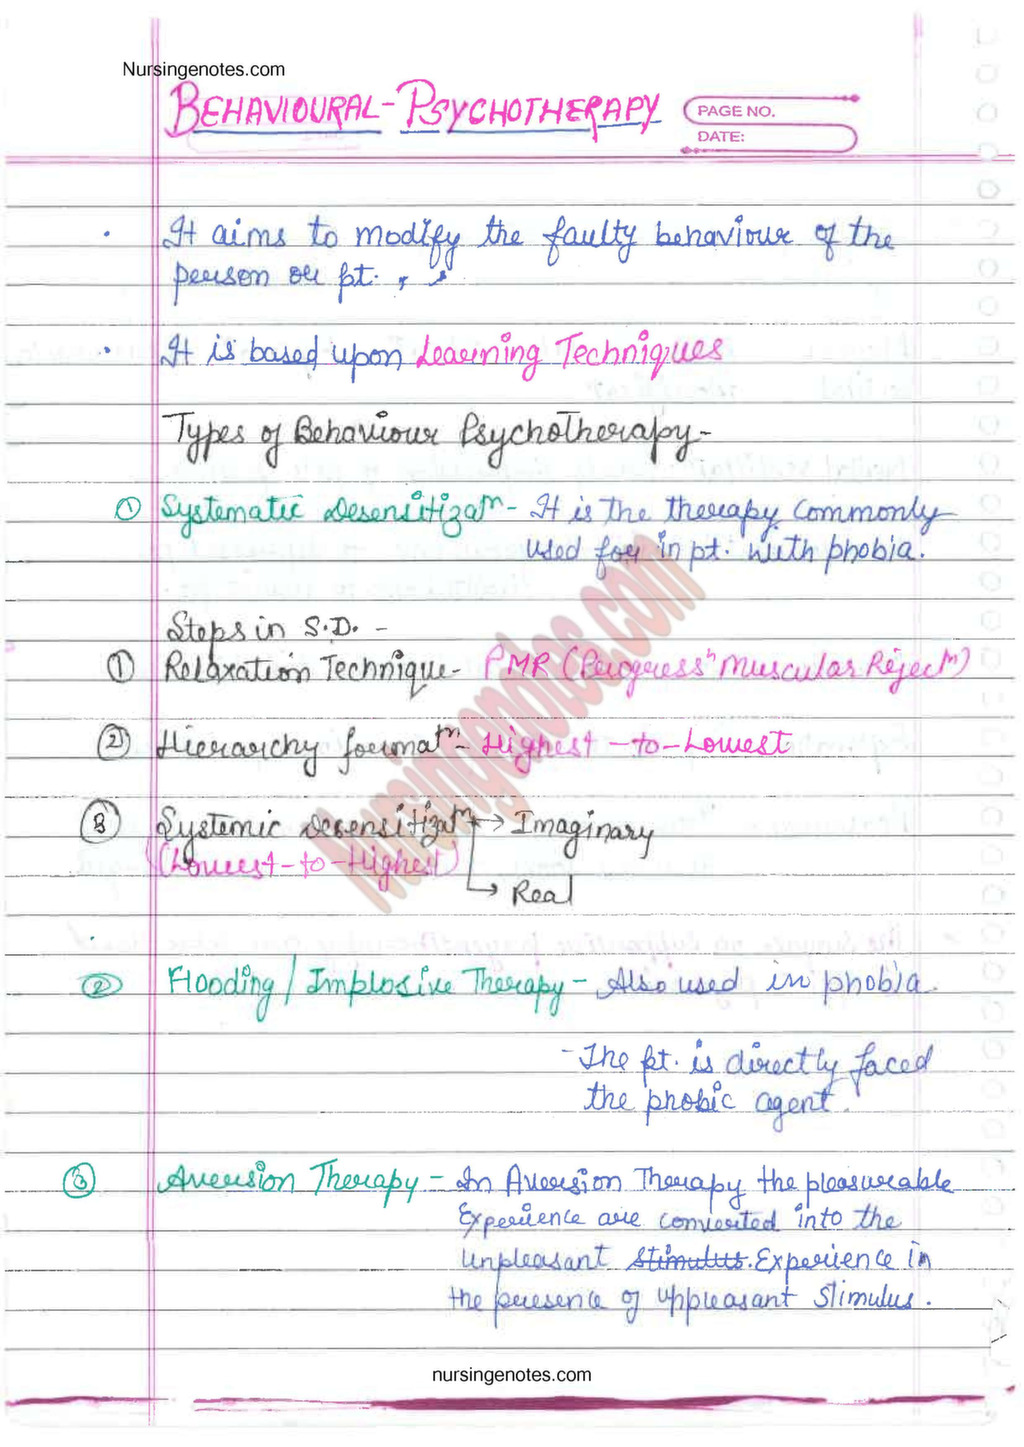 Nursingenotes.com
BEHAVIOURAL-PSYCHOTHERAPY
PAGE NO.
DATE:
. It aims to modify the faulty behaviour of the
person or pt.
. It is based upon Learning Techniques
Types of Behaviour Psychotherapy-
① Systematic Desensitizatn - It is the therapy commonly
used for in pt. with phobia.
Steps in S.D. -
① Relaxation Technique - PMR (Progressn Muscular Rejectn)
② Hierarchy formatn - Highest-to-Lowest
③ Systemic desensitizatn → Imaginary
(Lowest-to-Highest)
→ Real
② Flooding / Implosive Therapy - Also used in phobia.
- The pt. is directly faced
the phobic agent.
③ Aversion Therapy - In Aversion Therapy the pleasurable
Experience are converted into the
Unpleasant stimulus. Experience in
the presence of uppleasant Stimulus.
Nursingenotes.com
nursingenotes.com